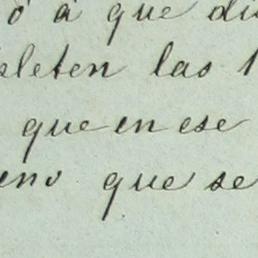 ó á que di
pleten las 1
que en ese
eno que se